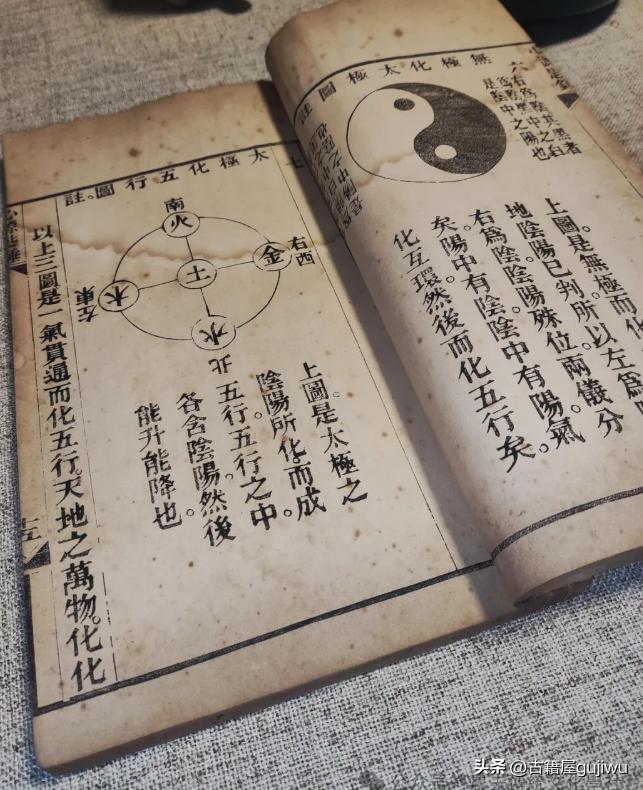 無極化太極圖註
上圖。是無極而化
地陰陽已判。所以左爲
右爲陰。陰陽殊位。兩儀分
矣。陽中有陰陰中有陽。氣
化互環。然後而化五行矣。
太極化五行圖。註
南
火
右西
金
土
左東
木
水
北
上圖。是太極之
陰陽所化。而成
五行。五行之中。
各含陰陽。然後
能升能降也
以上三圖是一氣貫通而化五行。天地之萬物。化化
十五
头条 @古籍屋gujiwu